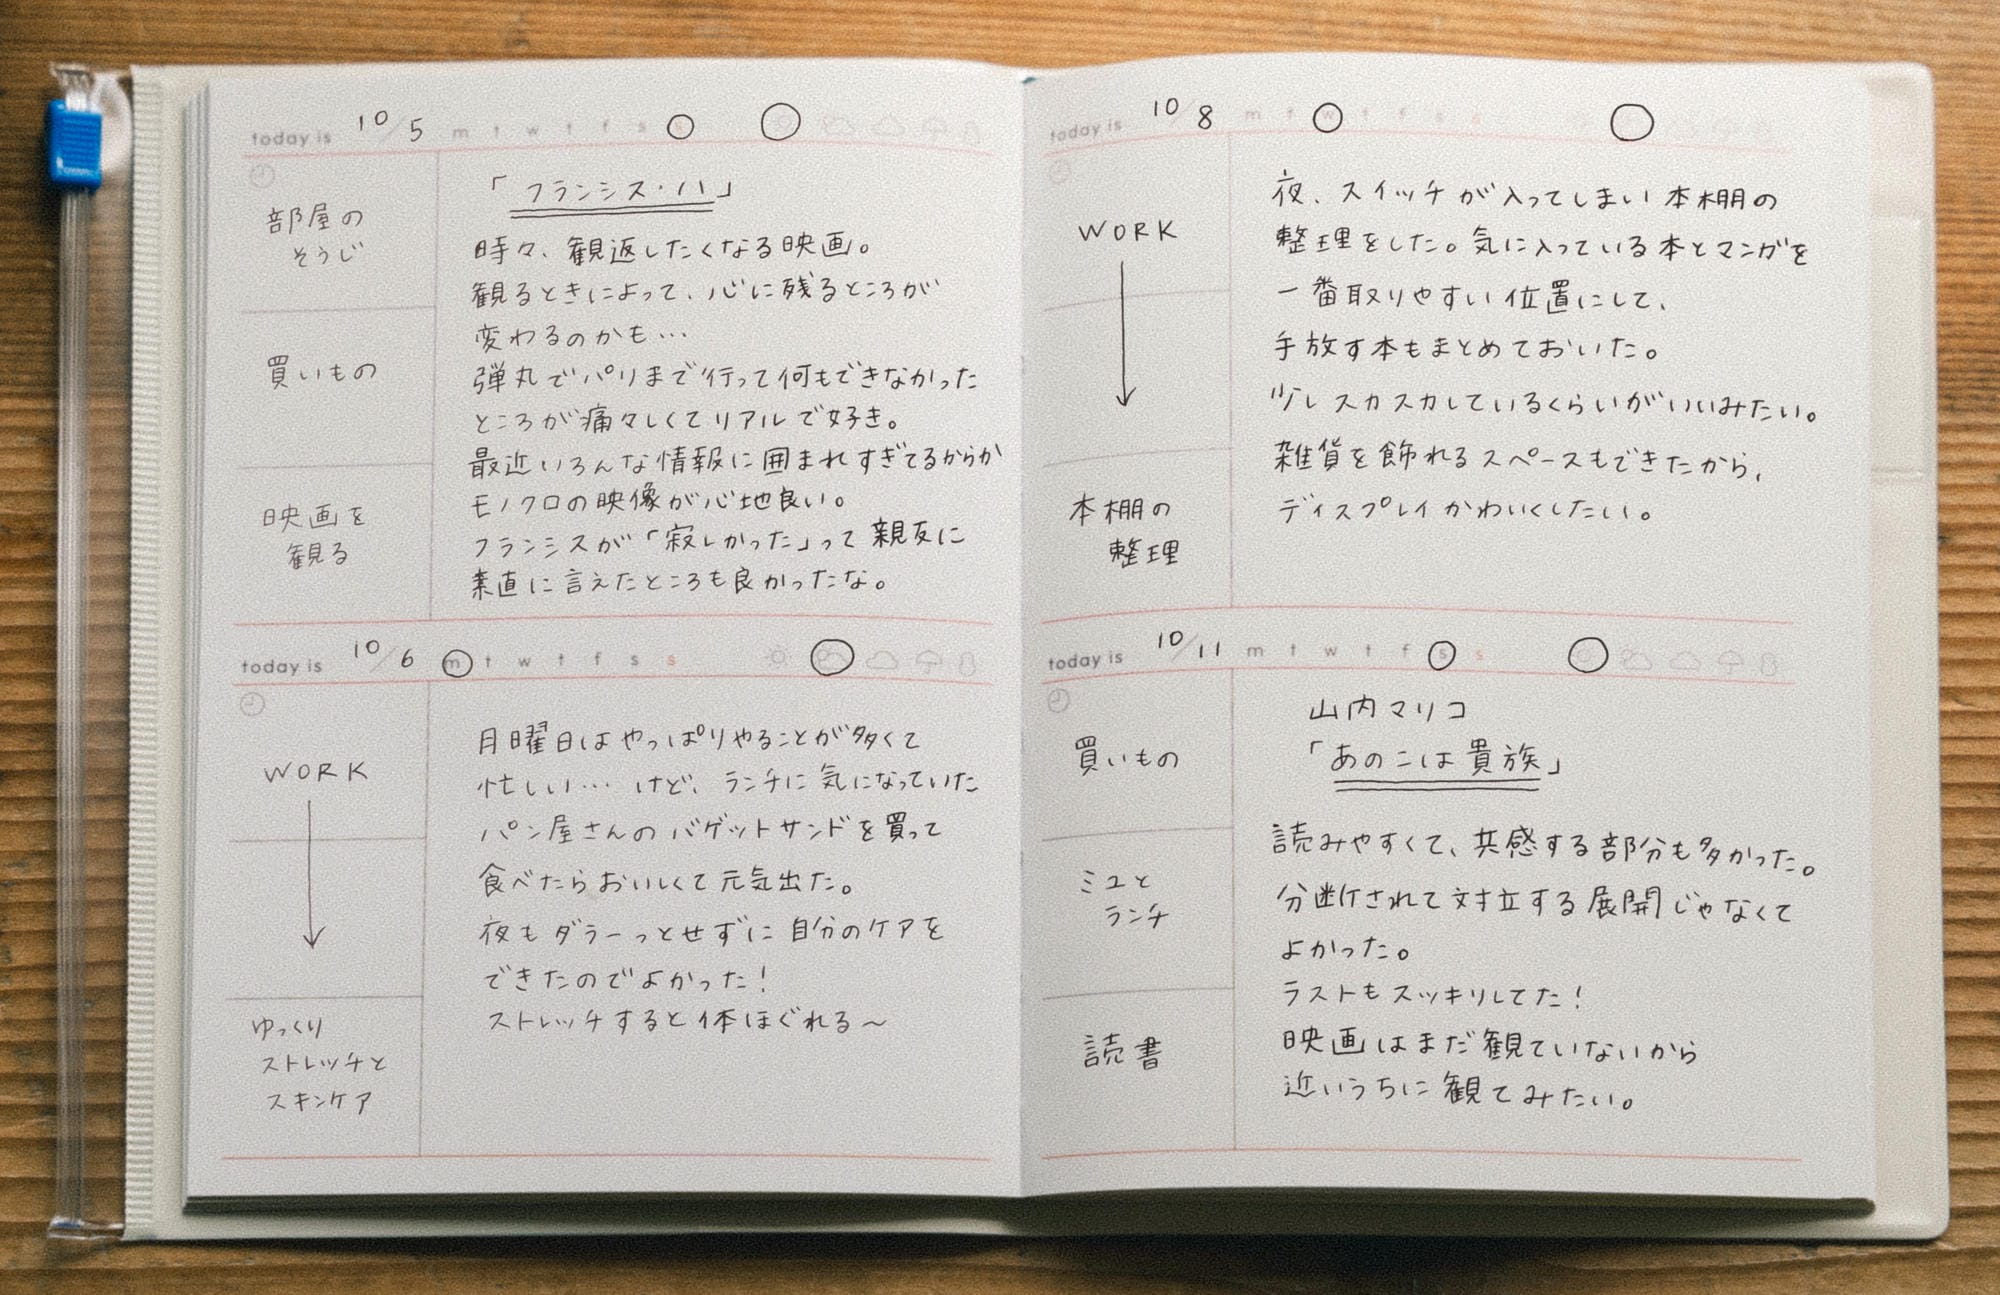 today is 10/5 m t w t f s s
部屋の
そうじ
買いもの
映画を
観る
「フランシス・ハ」
時々、観返したくなる映画。
観るときによって、心に残るところが
変わるのかも…
弾丸でパリまで行って何もできなかった
ところが痛々しくてリアルで好き。
最近いろんな情報に囲まれすぎてるからか
モノクロの映像が心地良い。
フランシスが「寂しかった」って親友に
素直に言えたところも良かったな。
today is 10/6 m t w t f s s
WORK
ゆっくり
ストレッチと
スキンケア
月曜日はやっぱりやることが多くて
忙しい… けど、ランチに気になっていた
パン屋さんのバゲットサンドを買って
食べたらおいしくて元気出た。
夜もダラーっとせずに自分のケアを
できたのでよかった!
ストレッチすると体ほぐれる〜
today is 10/8 m t w t f s s
WORK
本棚の
整理
夜、スイッチが入ってしまい本棚の
整理をした。気に入っている本とマンガを
一番取りやすい位置にして、
手放す本もまとめておいた。
少しスカスカしているくらいがいいみたい。
雑貨を飾れるスペースもできたから、
ディスプレイかわいくしたい。
today is 10/11 m t w t f s s
買いもの
ミユと
ランチ
読書
山内マリコ
「あのこは貴族」
読みやすくて、共感する部分も多かった。
分断されて対立する展開じゃなくて
よかった。
ラストもスッキリしてた!
映画はまだ観ていないから
近いうちに観てみたい。